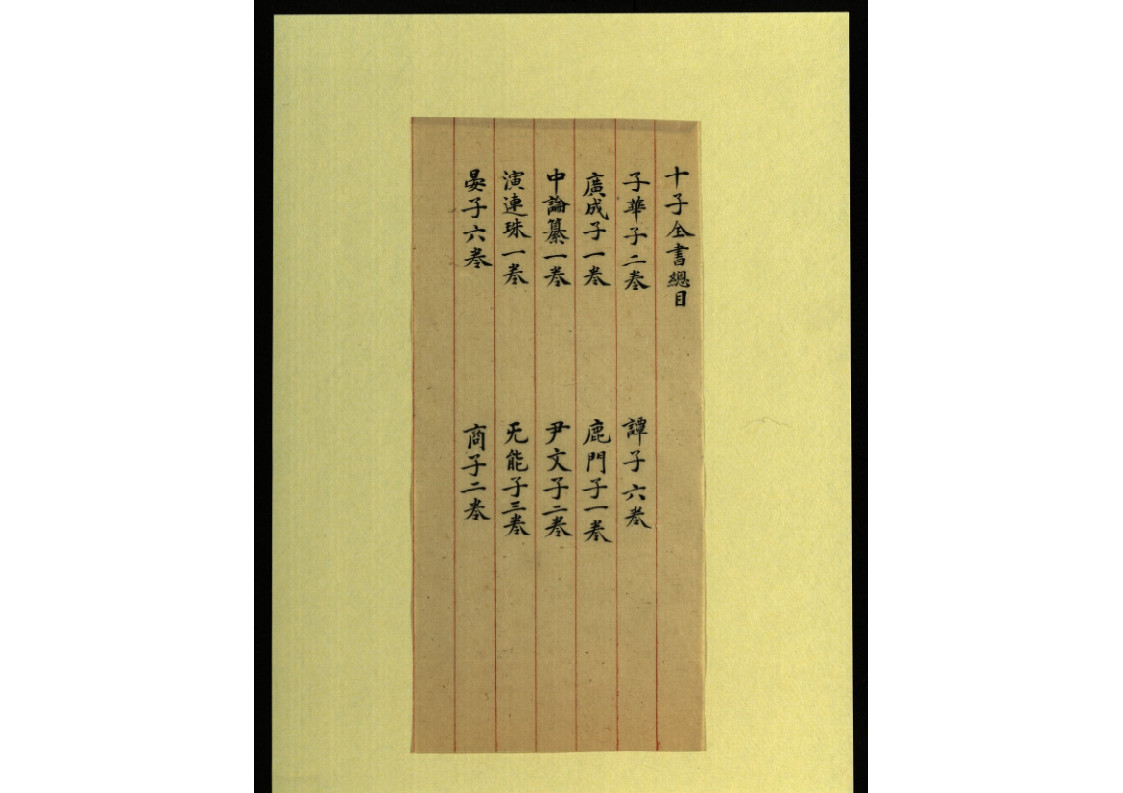 十子全書總目
子華子二卷　譚子六卷
廣成子一卷　鹿門子一卷
中論纂一卷　尹文子二卷
演連珠一卷　旡能子三卷
晏子六卷　商子二卷